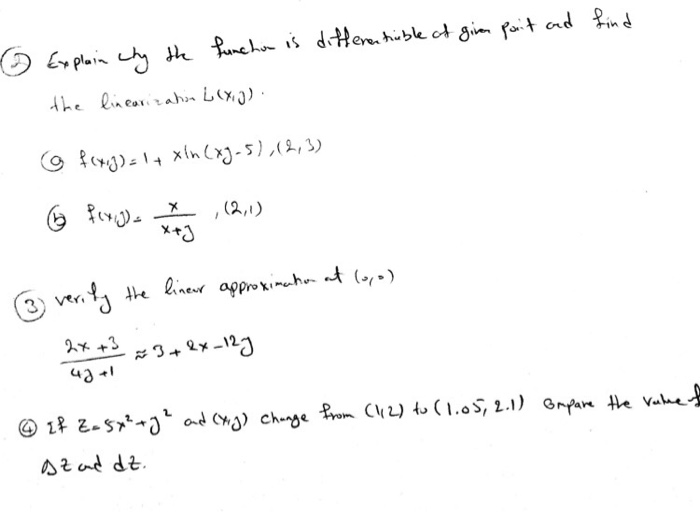 ② Explain why the function is differentiable at given point and find
the linearization L(x,y).
ⓐ f(x,y)=1+ xln(xy-5), (2,3)
ⓑ f(x,y)= x/(x+y) , (2,1)
③ verify the linear approximation at (0,0)
(2x+3)/(4y+1) ≈ 3+2x-12y
④ If Z=5x²+y² and (x,y) change from (1,2) to (1.05, 2.1) compare the value of
Δz and dz.